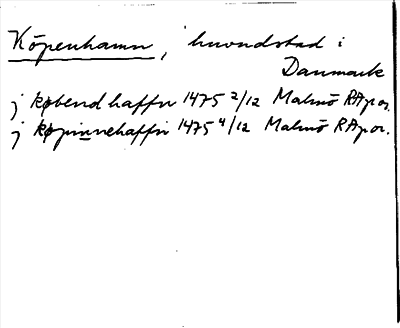 Köpenhamn, huvudstad i
Danmark
j købend haffn 1475 2/12 Malmö RAp or.
j køpinnehaffn 1475 4/12 Malmö RAp or.